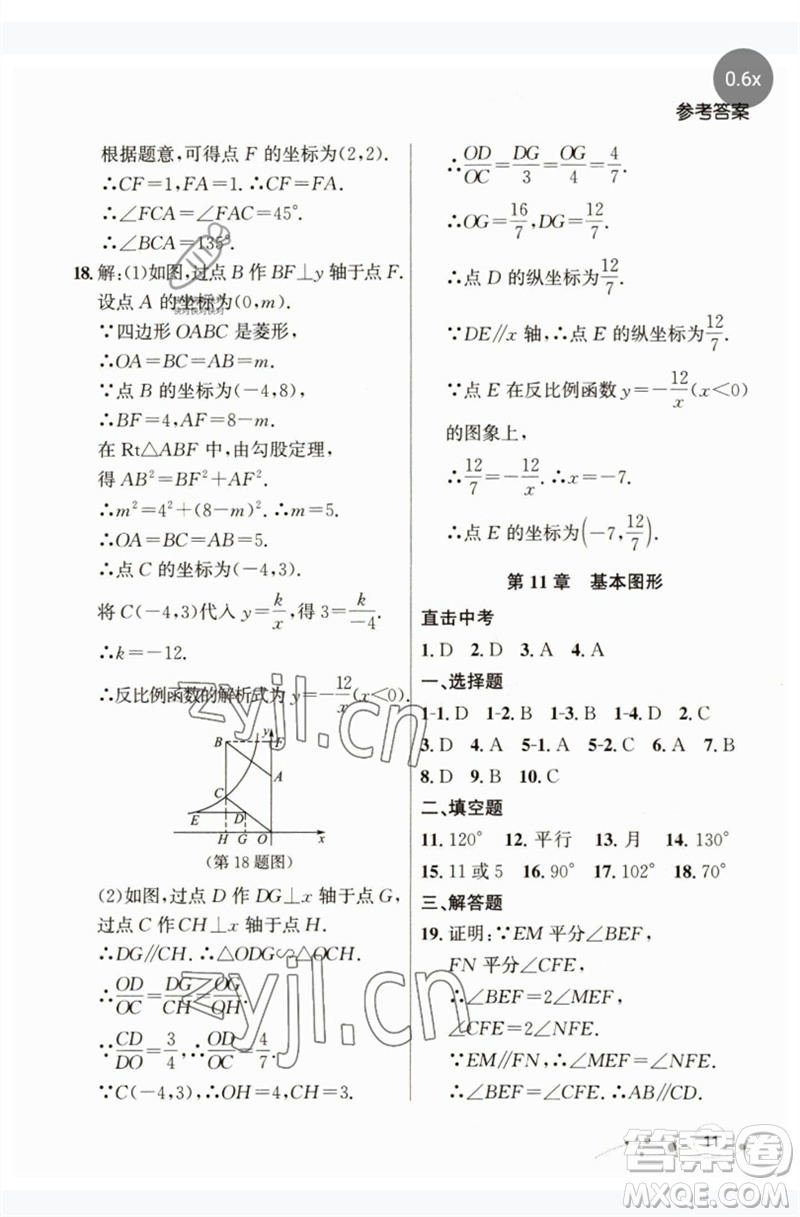 0.6x
参考答案
根据题意,可得点 F 的坐标为(2,2).
∴CF=1,FA=1. ∴CF=FA.
∴∠FCA=∠FAC=45°.
∴∠BCA=135°.
18. 解:(1)如图,过点 B 作 BF⊥y 轴于点 F.
设点 A 的坐标为(0,m).
∵四边形 OABC 是菱形,
∴OA=BC=AB=m.
∵点 B 的坐标为(-4,8),
∴BF=4,AF=8-m.
在 Rt△ABF 中,由勾股定理,
得 AB²=BF²+AF².
∴m²=4²+(8-m)². ∴m=5.
∴OA=BC=AB=5.
∴点 C 的坐标为(-4,3).
将 C(-4,3)代入 y=k/x,得 3=k/-4.
∴k=-12.
∴反比例函数的解析式为 y=-12/x(x<0).
B y F
A
C
E D
H G O x
(第 18 题图)
(2)如图,过点 D 作 DG⊥x 轴于点 G,
过点 C 作 CH⊥x 轴于点 H.
∴DG∥CH. ∴△ODG∽△OCH.
∴OD/OC=DG/CH=OG/OH.
∵CD/DO=3/4, ∴OD/OC=4/7.
∵C(-4,3),∴OH=4,CH=3.
∴OD/OC=DG/3=OG/4=4/7.
∴OG=16/7,DG=12/7.
∴点 D 的纵坐标为12/7.
∵DE∥x 轴,∴点 E 的纵坐标为12/7.
∵点 E 在反比例函数 y=-12/x(x<0)
的图象上,
∴12/7=-12/x. ∴x=-7.
∴点 E 的坐标为(-7,12/7).
第 11 章 基本图形
直击中考
1. D 2. D 3. A 4. A
一、选择题
1-1. D 1-2. B 1-3. B 1-4. D 2. C
3. D 4. A 5-1. A 5-2. C 6. D 7. B
8. D 9. B 10. C
二、填空题
11. 120° 12. 平行 13. 月 14. 130°
15. 11 或 5 16. 90° 17. 102° 18. 70°
三、解答题
19. 证明:∵EM 平分∠BEF,
FN 平分∠CFE,
∴∠BEF=2∠MEF,
∠CFE=2∠NFE.
∵EM∥FN,∴∠MEF=∠NFE.
∴∠BEF=∠CFE. ∴AB∥CD.
11
zyjl.cn
zyjl.cn
答案圈
MXQE.COM